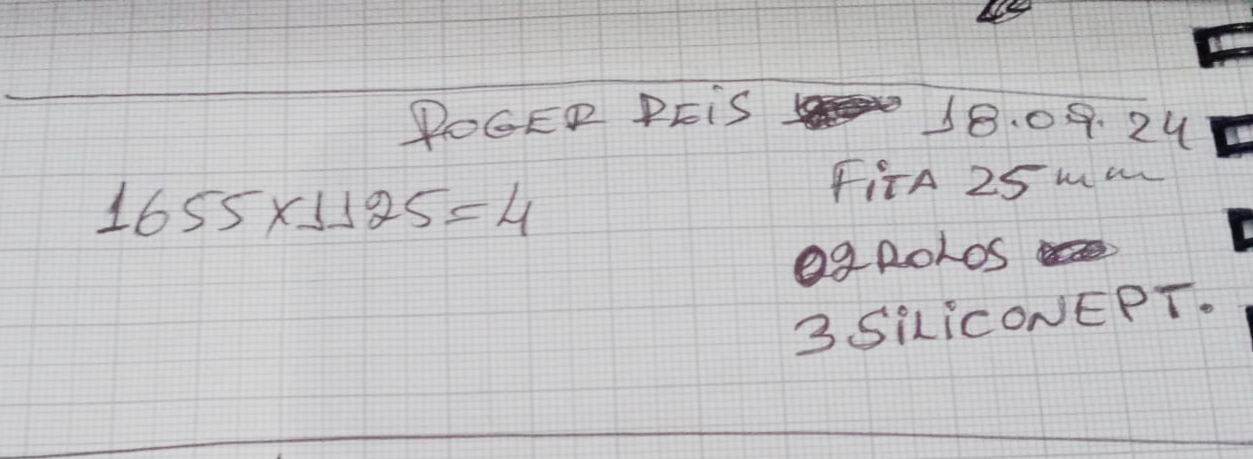 ROGER REIS 18.09.24
FiTA 25mm
1655x1125=4
02 ROLOS
3 SiLiCONE PT.